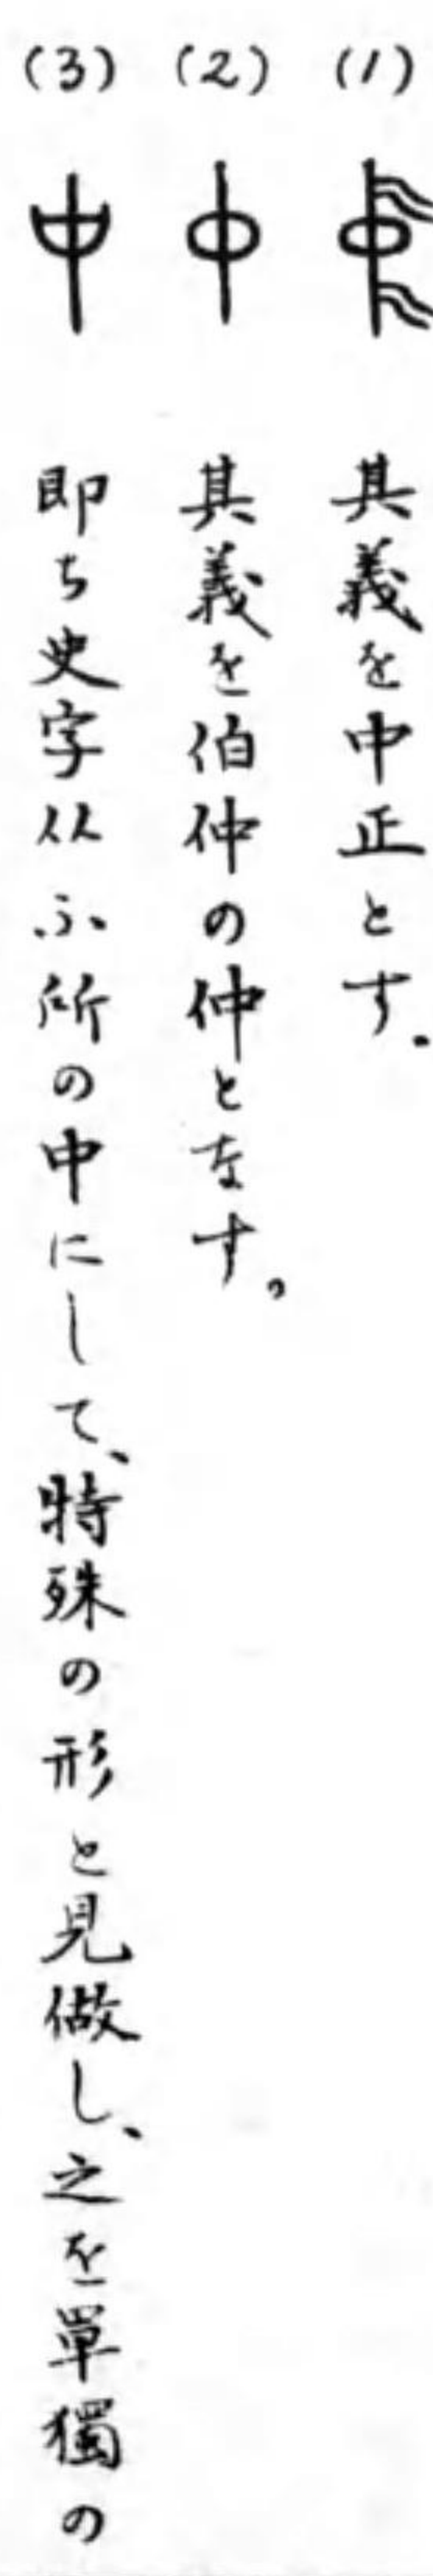 (1) 其義を中正とす.
(2) 其義を伯仲の仲となす。
(3) 即ち史字从ふ所の中にして、特殊の形と見做し、之を單獨の